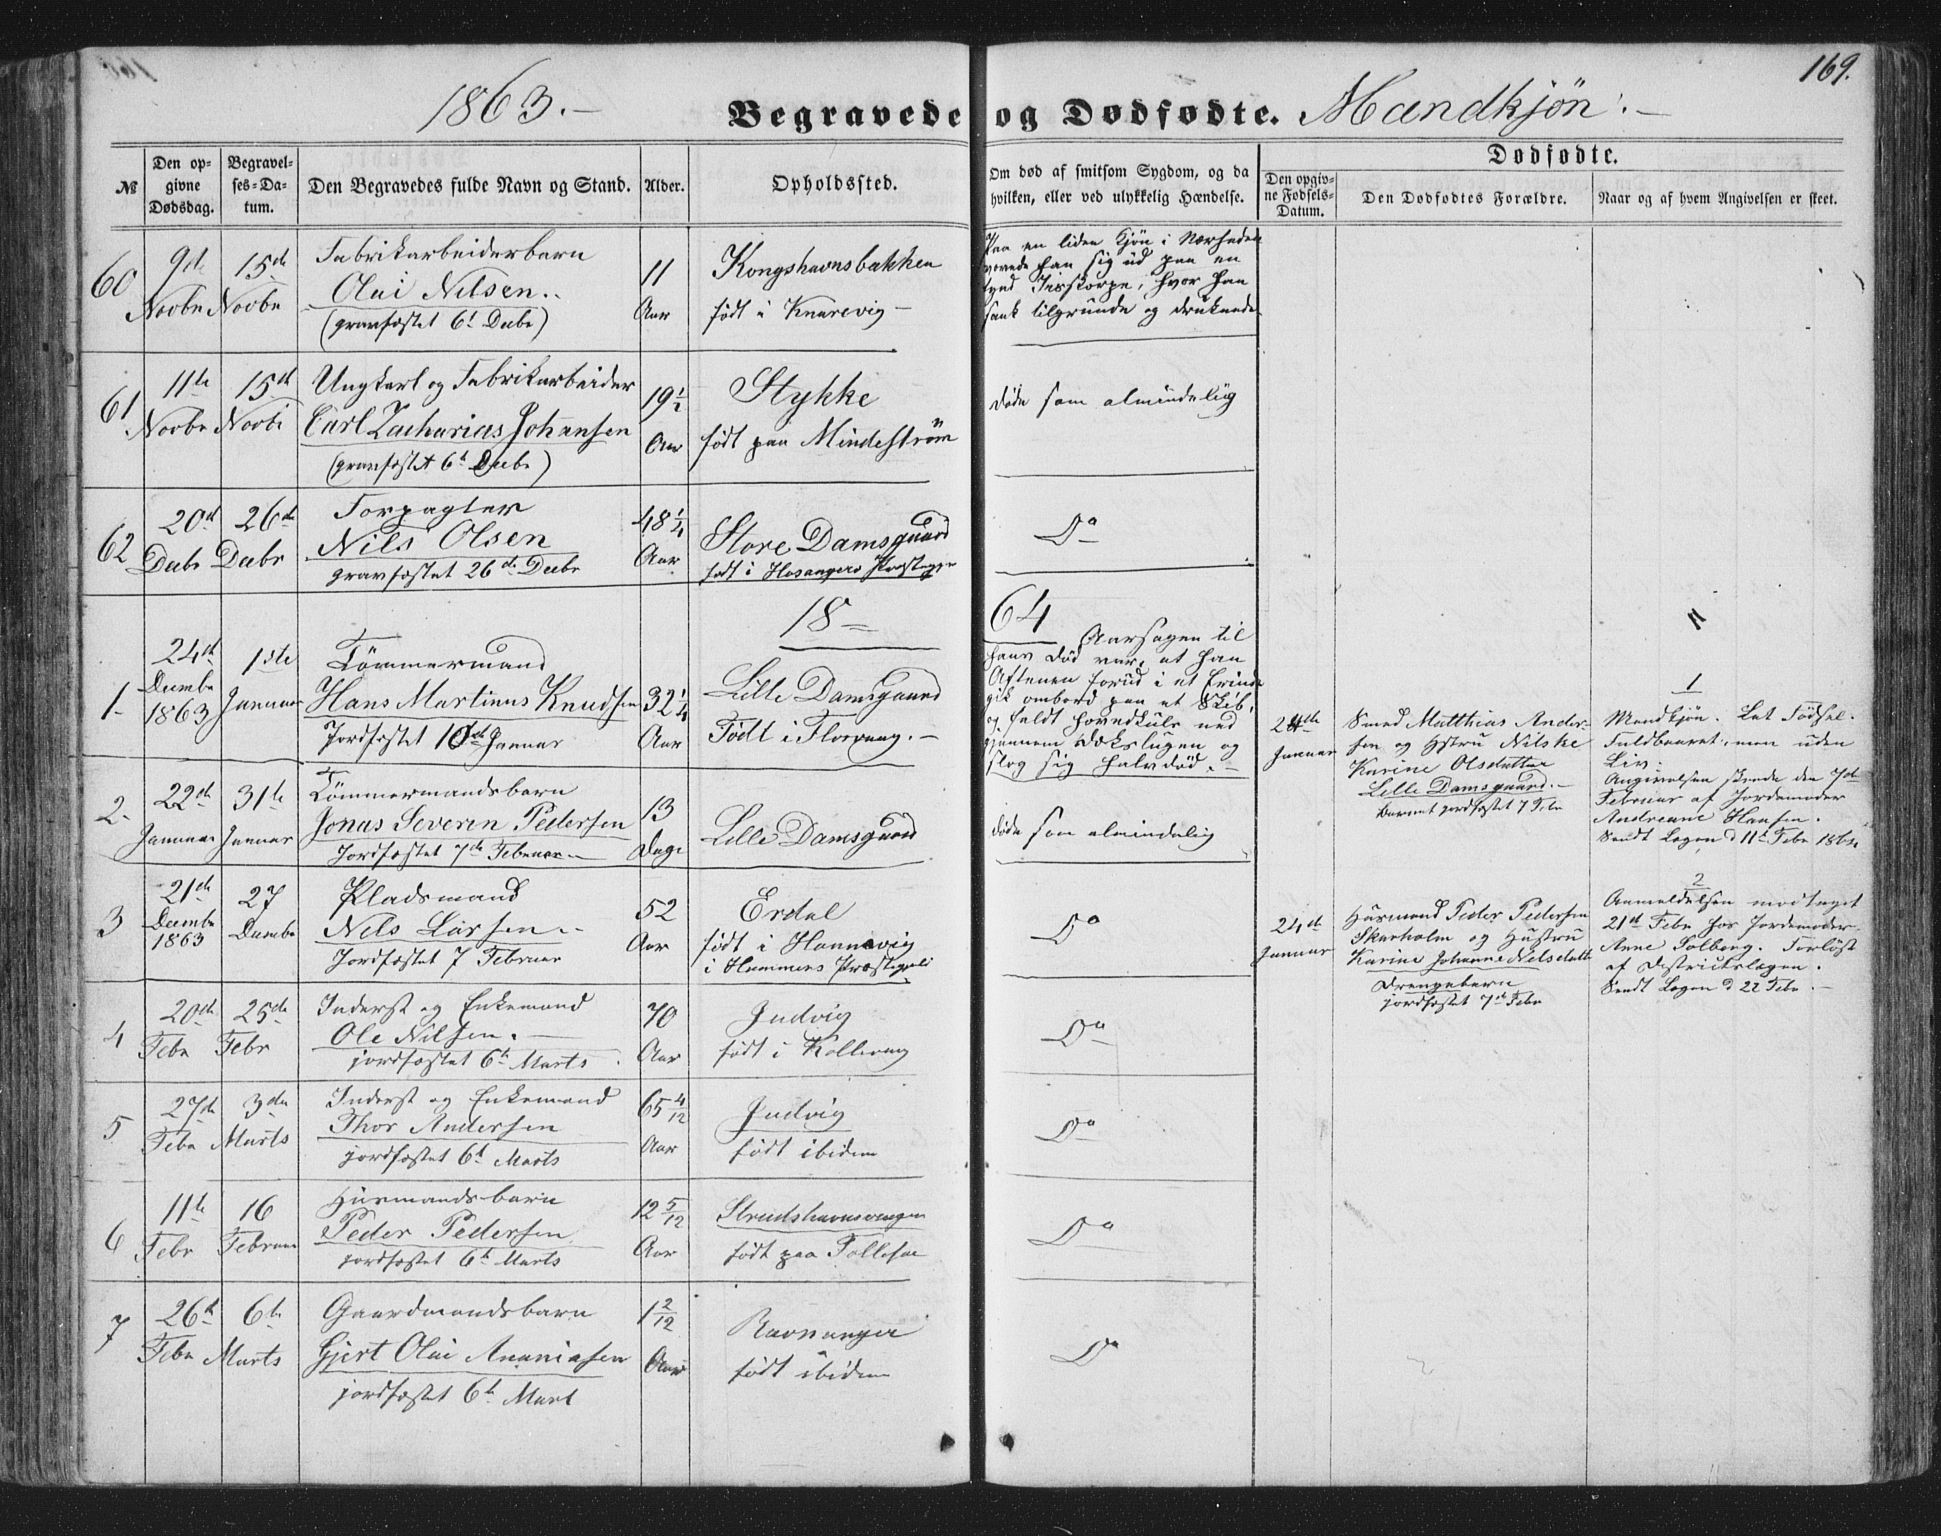 169.
1863.-
Begravede og Dødfødte. Mandkjøn:-
№
Den opgivne Dødsdag.
Begravelses-Datum.
Den Begravedes fulde Navn og Stand.
Alder.
Opholdssted.
Om død af smitsom Sygdom, og da hvilken, eller ved ulykkelig Hændelse.
Dødfødte.
Den opgivne Fødsels-Datum.
Den Dødfødtes Forældre.
Naar og af hvem Angivelsen er skeet.
60
9de Novbr
15de Novbr
Fabrikarbeiderbarn
Olai Nilsen..
(gravfæstet 6t Decbr)
11 Aar
Kongshavnsbakken
født i Knarevig -
Paa en liden Kjøn i Nærheden
vovede han sig ud paa en
tynd Iisskorpe, hvor han
sank tilgrunde og druknede
61
11te Novbr
15de Novbr
Ungkarl og Fabrikarbeider
Carl Zacharias Johansen
(gravfæstet 6t Decbr)
19 1/2 Aar
Stykke
født paa Mindeström
døde som almindelig
62
20de Decbr
26de Decbr
Forpagter
Nils Olsen
gravfæstet 26de Decbr
48 1/4 Aar
Store Damsgaard
født i Hosangers Præstegj
Do
18 =
64
1.
24de Decembr 1863
1ste Januar
Tömmermand
Hans Martinus Knudsen
Jordfæstet 10de Januar
32 1/4 Aar
Lille Damsgaard
Født i Florvaag.-
Aarsagen til
hans Død var, at han
Aftenen forud i et Ærinde
gik ombord paa et Skib,
og faldt hovedkuls ned
gjennem Dækslugen og
slog sig halvdød.-
2.
22de Januar
31te Januar
Tömmermandsbarn
Jonas Severin Pedersen
Jordfæstet 7de Februar
13 Dage
Lille Damsgaard
døde som almindelig
3
21de Decembr 1863
27 Decembr
Pladsmand
Nels Larsen..
Jordfæstet 7 Februar
52 Aar
Erdal
født i Hannevig
i Hammers Præstegjeld
Do
4
20de Febr
25de Febr
Inderst og Enkemand
Ole Nilsen.
jordfæstet 6te Marts
70 Aar
Judvig
født i Kollevaag
Do
5
27de Febr
3die Marts
Inderst og Enkemand
Thor Andersen
jordfæstet 6t Marts
65 4/12 Aar
Judvig
født ibidem
Do
6
11te Febr
16 Februar
Husmandsbarn
Peder Pedersen
jordfæstet 6te Marts
12 5/12 Aar
Strudshavnsvaagen
født paa
Do
7
26te Febr
6te Marts
Gaardmandsbarn
Gjert Olai Ananiasen
jordfæstet 6te Mart
1 2/12 Aar
Ravnanger
født ibidem
Do
1
24de Januar
Smed Matthias Andersen og Hstru Nilske
Karine Olsdatter
Lille Damsgaard.-
Barnet jordfæstet 7 Febr
Mandkjøn. Let Fødsel.
Fuldbaaret, men uden
Liv.
Angivelsen skeede den 7de
Februar af Jordemoder
Andreane Hansen.
Sendt Lægen d 11te Febr 1864
2
24de Januar
Husmand Peder Pedersen
Skarholm og Hustru
Karine Johanne Nelsdatter
Drengebarn
jordfæstet 7de Febr
Anmeldelsen modtaget
21de Febr hos Jordemoder
Anne Solberg. Forløst
af Districtslægen.
Sendt Lægen d 22 Febr.-